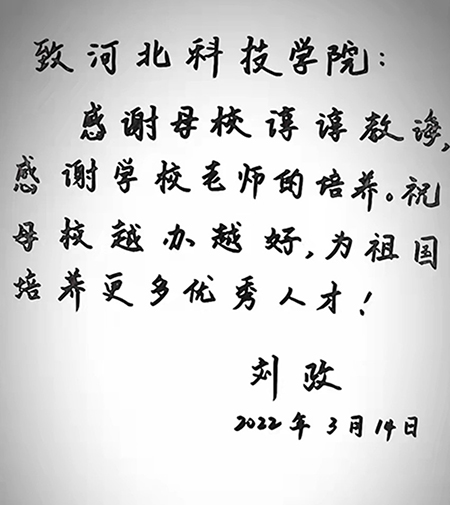 致河北科技学院:
感谢母校谆谆教诲,
感谢学校老师的培养。祝
母校越办越好,为祖国
培养更多优秀人才!
刘玫
2022年3月14日